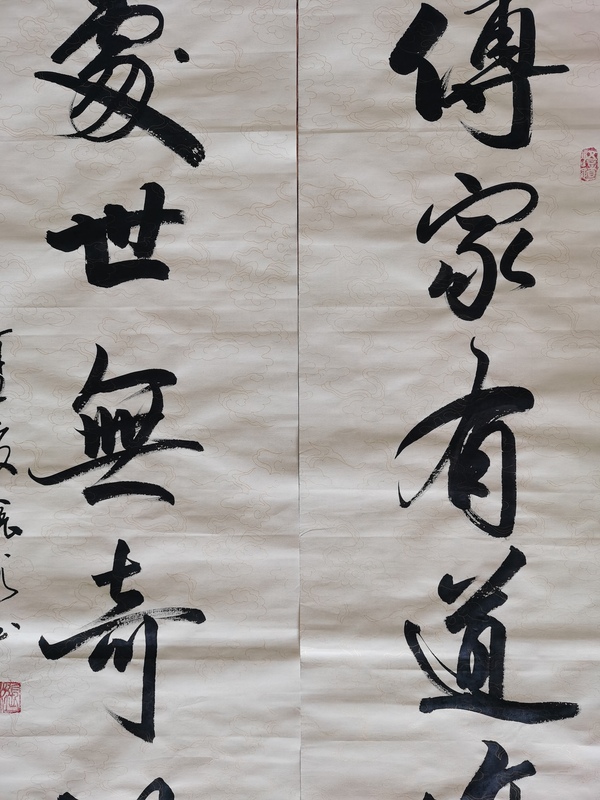 傳家有道
處世無奇